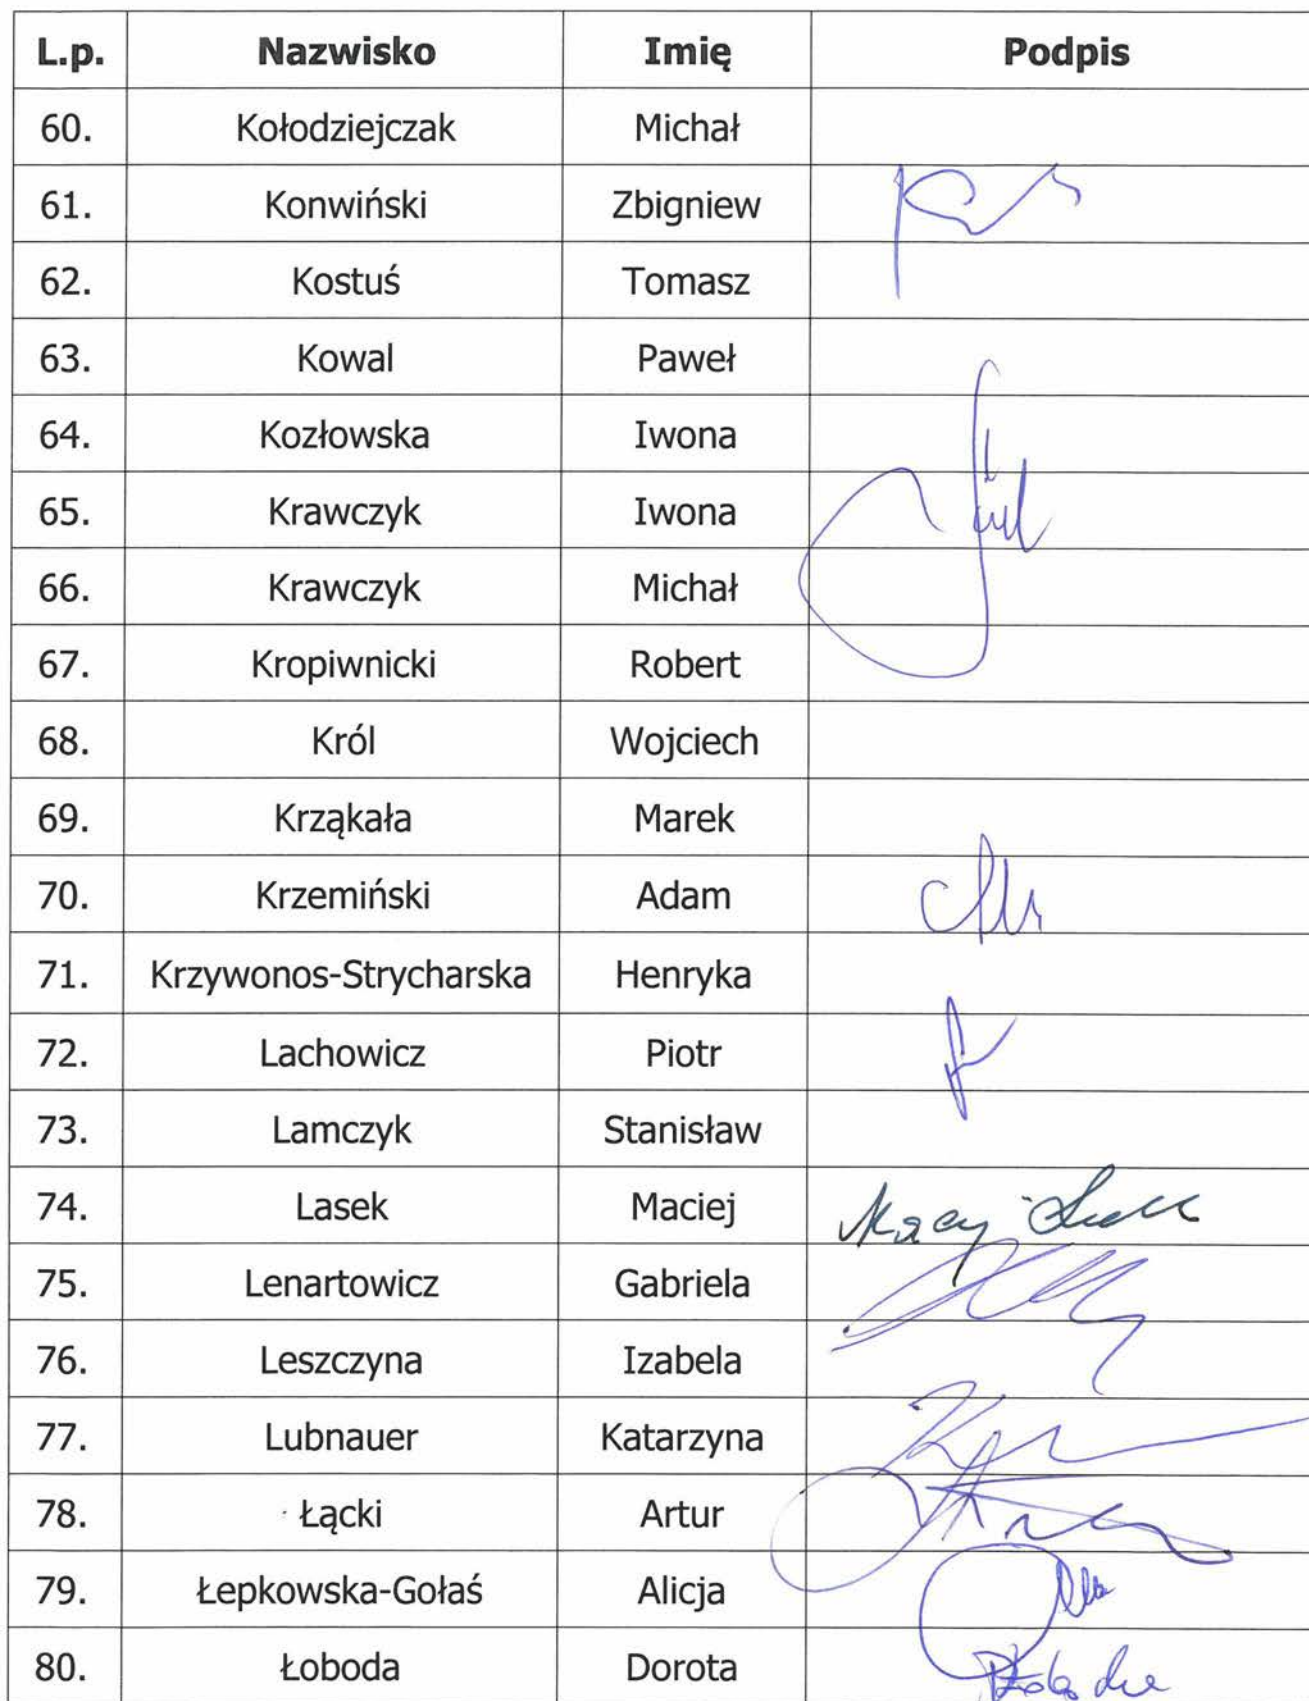 L.p. Nazwisko Imię Podpis
60. Kołodziejczak Michał
61. Konwiński Zbigniew
62. Kostuś Tomasz
63. Kowal Paweł
64. Kozłowska Iwona
65. Krawczyk Iwona
66. Krawczyk Michał
67. Kropiwnicki Robert
68. Król Wojciech
69. Krząkała Marek
70. Krzemiński Adam
71. Krzywonos-Strycharska Henryka
72. Lachowicz Piotr
73. Lamczyk Stanisław
74. Lasek Maciej
75. Lenartowicz Gabriela
76. Leszczyna Izabela
77. Lubnauer Katarzyna
78. Łącki Artur
79. Łepkowska-Gołaś Alicja
80. Łoboda Dorota